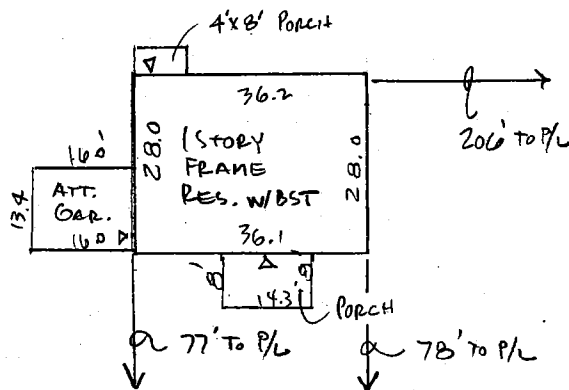 4'x8' PORCH
36.2
206' TO P/L
28.0
1 STORY
FRAME
RES. W/BST
28.0
16.0'
ATT.
GAR.
13.4
16.0
36.1
8'
8'
14.3'
PORCH
77' TO P/L
78' TO P/L